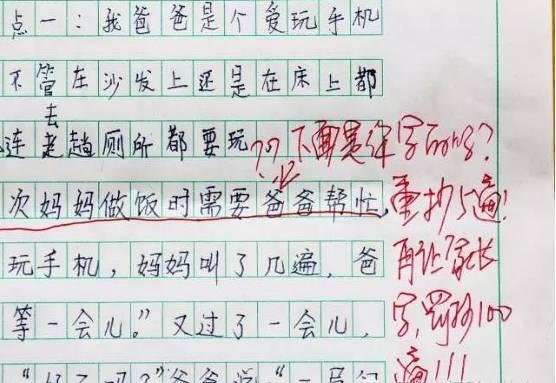 点一:我爸爸是个爱玩手机
不管在沙发上还是在床上都
去
连老趟厕所都要玩
??下面是
次妈妈做饭时需要爸爸帮忙,
重抄5遍!
玩手机,妈妈叫了几遍,爸
再让家长
等一会儿。"又过了一会儿,
字,罚抄100
遍!!!
"好了吗?"爸爸说:"一局